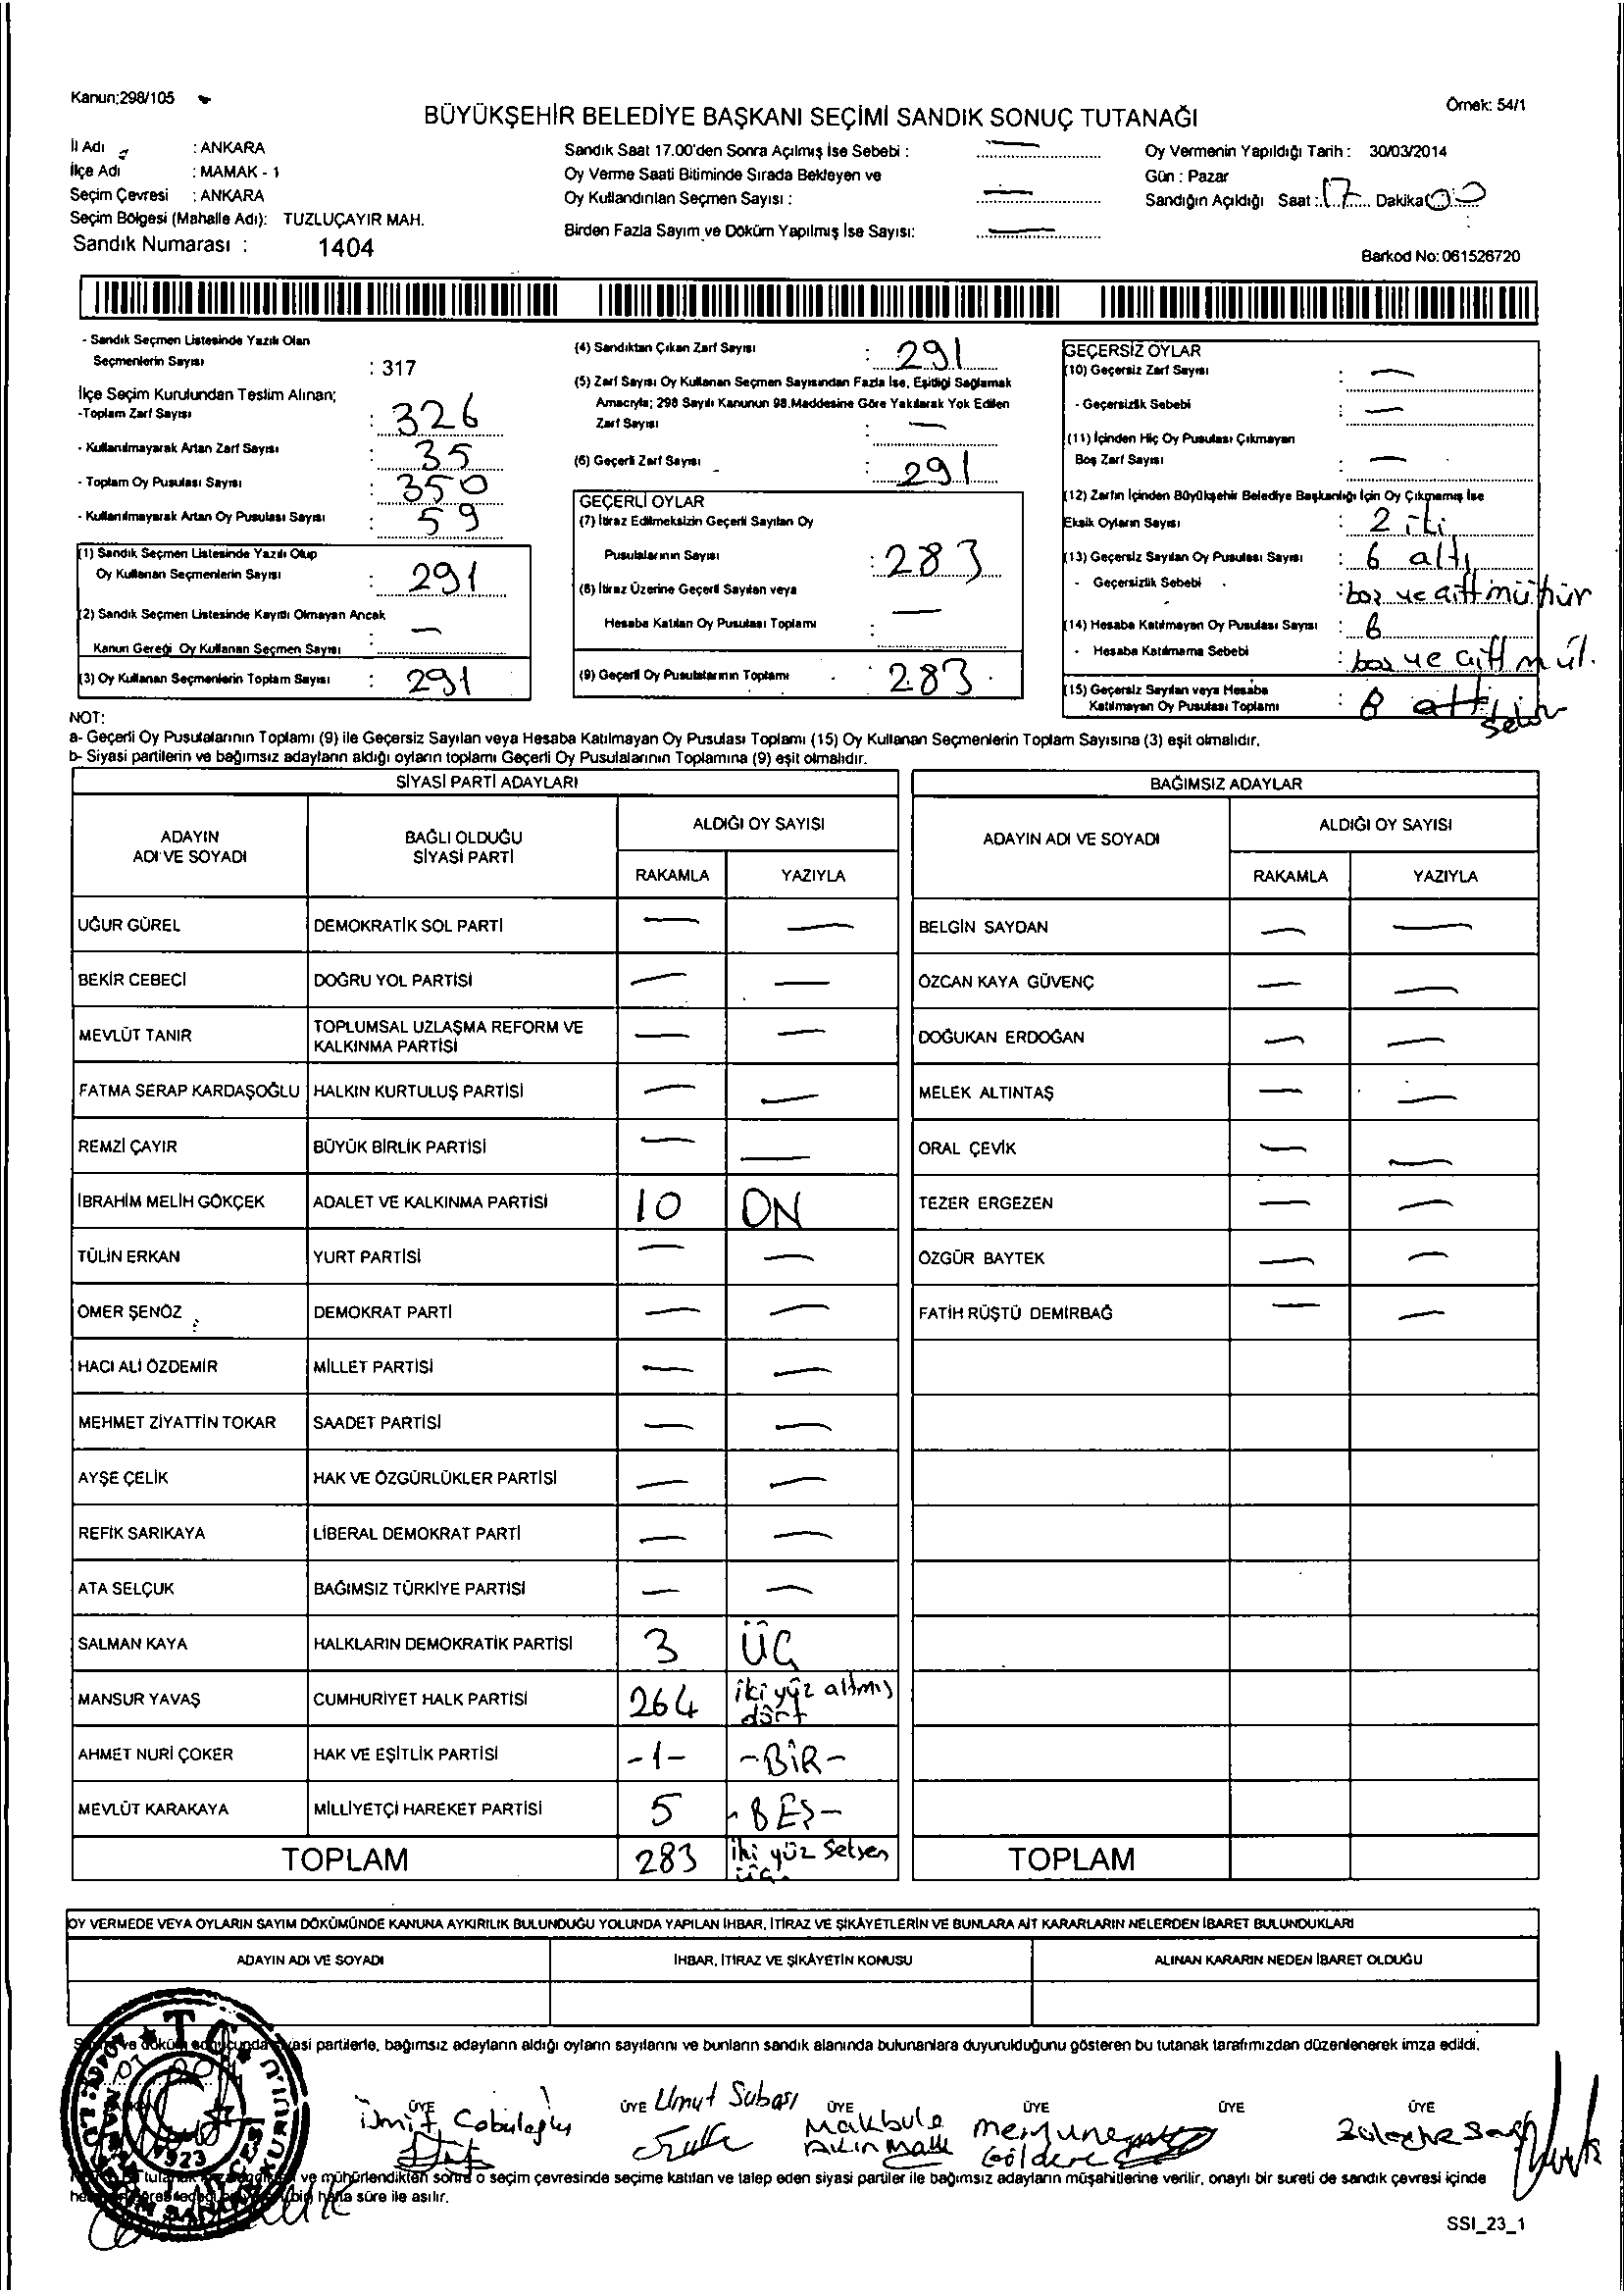 Kanun;298/105
Örnek: 54/1
BÜYÜKŞEHİR BELEDİYE BAŞKANI SEÇİMİ SANDIK SONUÇ TUTANAĞI
İl Adı : ANKARA
İlçe Adı : MAMAK - 1
Seçim Çevresi : ANKARA
Seçim Bölgesi (Mahalle Adı): TUZLUÇAYIR MAH.
Sandık Numarası : 1404
Sandık Saat 17.00'den Sonra Açılmış İse Sebebi : —
Oy Verme Saati Bitiminde Sırada Bekleyen ve
Oy Kullandırılan Seçmen Sayısı : —
Birden Fazla Sayım ve Döküm Yapılmış İse Sayısı: —
Oy Vermenin Yapıldığı Tarih : 30/03/2014
Gün : Pazar
Sandığın Açıldığı Saat : 17 Dakika 00
Barkod No: 061526720
- Sandık Seçmen Listesinde Yazılı Olan
Seçmenlerin Sayısı : 317
İlçe Seçim Kurulundan Teslim Alınan;
-Toplam Zarf Sayısı : 326
- Kullanılmayarak Artan Zarf Sayısı : 35
- Toplam Oy Pusulası Sayısı : 350
- Kullanılmayarak Artan Oy Pusulası Sayısı : 59
(1) Sandık Seçmen Listesinde Yazılı Olup
Oy Kullanan Seçmenlerin Sayısı : 291
(2) Sandık Seçmen Listesinde Kayıtlı Olmayan Ancak
Kanun Gereği Oy Kullanan Seçmen Sayısı : —
(3) Oy Kullanan Seçmenlerin Toplam Sayısı : 291
(4) Sandıktan Çıkan Zarf Sayısı : 291
(5) Zarf Sayısı Oy Kullanan Seçmen Sayısından Fazla İse, Eşitliği Sağlamak
Amacıyla; 298 Sayılı Kanunun 98.Maddesine Göre Yakılarak Yok Edilen
Zarf Sayısı : —
(6) Geçerli Zarf Sayısı : 291
GEÇERLİ OYLAR
(7) İtiraz Edilmeksizin Geçerli Sayılan Oy
Pusulalarının Sayısı : 283
(8) İtiraz Üzerine Geçerli Sayılan veya
Hesaba Katılan Oy Pusulası Toplamı : —
(9) Geçerli Oy Pusulalarının Toplamı : 283
GEÇERSİZ OYLAR
(10) Geçersiz Zarf Sayısı : —
- Geçersizlik Sebebi : —
(11) İçinden Hiç Oy Pusulası Çıkmayan
Boş Zarf Sayısı : —
(12) Zarfın İçinden Büyükşehir Belediye Başkanlığı İçin Oy Çıkmamış İse
Eksik Oyların Sayısı : 2 iki
(13) Geçersiz Sayılan Oy Pusulası Sayısı : 6 altı
- Geçersizlik Sebebi : boş ve çift mühür
(14) Hesaba Katılmayan Oy Pusulası Sayısı : 6
- Hesaba Katılmama Sebebi : boş ve çift mül.
(15) Geçersiz Sayılan veya Hesaba
Katılmayan Oy Pusulası Toplamı : 8
NOT:
a- Geçerli Oy Pusulalarının Toplamı (9) ile Geçersiz Sayılan veya Hesaba Katılmayan Oy Pusulası Toplamı (15) Oy Kullanan Seçmenlerin Toplam Sayısına (3) eşit olmalıdır.
b- Siyasi partilerin ve bağımsız adayların aldığı oyların toplamı Geçerli Oy Pusulalarının Toplamına (9) eşit olmalıdır.
SİYASİ PARTİ ADAYLARI
ADAYIN ADI VE SOYADI BAĞLI OLDUĞU SİYASİ PARTİ ALDIĞI OY SAYISI
RAKAMLA YAZIYLA
UĞUR GÜREL DEMOKRATİK SOL PARTİ — —
BEKİR CEBECİ DOĞRU YOL PARTİSİ — —
MEVLÜT TANIR TOPLUMSAL UZLAŞMA REFORM VE KALKINMA PARTİSİ — —
FATMA SERAP KARDAŞOĞLU HALKIN KURTULUŞ PARTİSİ — —
REMZİ ÇAYIR BÜYÜK BİRLİK PARTİSİ — —
İBRAHİM MELİH GÖKÇEK ADALET VE KALKINMA PARTİSİ 10 ON
TÜLİN ERKAN YURT PARTİSİ — —
ÖMER ŞENÖZ DEMOKRAT PARTİ — —
HACI ALİ ÖZDEMİR MİLLET PARTİSİ — —
MEHMET ZİYATTİN TOKAR SAADET PARTİSİ — —
AYŞE ÇELİK HAK VE ÖZGÜRLÜKLER PARTİSİ — —
REFİK SARIKAYA LİBERAL DEMOKRAT PARTİ — —
ATA SELÇUK BAĞIMSIZ TÜRKİYE PARTİSİ — —
SALMAN KAYA HALKLARIN DEMOKRATİK PARTİSİ 3 ÜÇ
MANSUR YAVAŞ CUMHURİYET HALK PARTİSİ 264 iki yüz altmış dört
AHMET NURİ ÇOKER HAK VE EŞİTLİK PARTİSİ -1- -BİR-
MEVLÜT KARAKAYA MİLLİYETÇİ HAREKET PARTİSİ 5 -BEŞ-
TOPLAM 283 iki yüz seksen üç.
BAĞIMSIZ ADAYLAR
ADAYIN ADI VE SOYADI ALDIĞI OY SAYISI
RAKAMLA YAZIYLA
BELGİN SAYDAN — —
ÖZCAN KAYA GÜVENÇ — —
DOĞUKAN ERDOĞAN — —
MELEK ALTINTAŞ — —
ORAL ÇEVİK — —
TEZER ERGEZEN — —
ÖZGÜR BAYTEK — —
FATİH RÜŞTÜ DEMİRBAĞ — —
TOPLAM
OY VERMEDE VEYA OYLARIN SAYIM DÖKÜMÜNDE KANUNA AYKIRILIK BULUNDUĞU YOLUNDA YAPILAN İHBAR, İTİRAZ VE ŞİKÂYETLERİN VE BUNLARA AİT KARARLARIN NELERDEN İBARET BULUNDUKLARI
ADAYIN ADI VE SOYADI İHBAR, İTİRAZ VE ŞİKÂYETİN KONUSU ALINAN KARARIN NEDEN İBARET OLDUĞU
ve döküm partilerle, bağımsız adayların aldığı oyların sayılarını ve bunların sandık alanında bulunanlara duyurulduğunu gösteren bu tutanak tarafımızdan düzenlenerek imza edildi.
ÜYE ÜYE ÜYE ÜYE ÜYE ÜYE
Umut Subaşı
Makbule
Akın
ve mühürlendikten sonra o seçim çevresinde seçime katılan ve talep eden siyasi partiler ile bağımsız adayların müşahitlerine verilir, onaylı bir sureti de sandık çevresi içinde
hafta süre ile asılır.
SSI_23_1